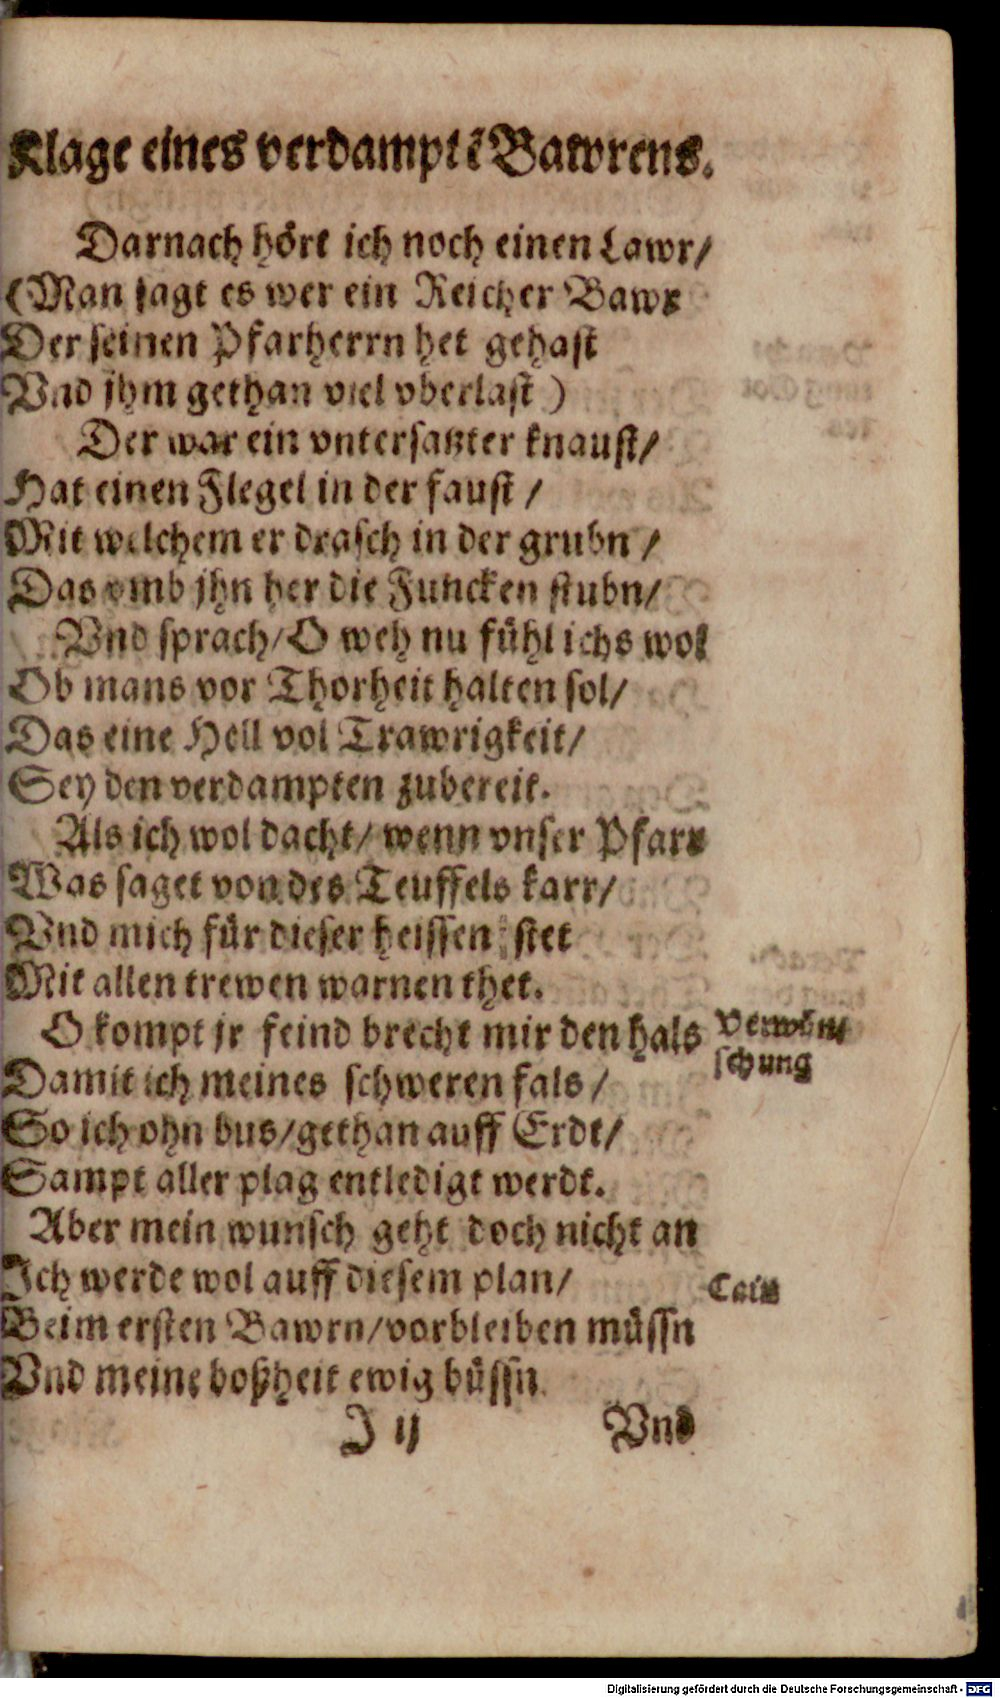 Klage eines verdamptẽ Bawrens.
Darnach hört ich noch einen Lawr/
(Man sagt es wer ein Reicher Bawr
Der seinen Pfarherrn het gehast
Vnd jhm gethan viel vberlast)
Der war ein vntersatzter knaust/
Hat einen Flegel in der faust/
Mit welchem er drasch in der grubn/
Das vmb jhn her die Funcken stubn/
Vnd sprach/O weh nu fühl ichs wol
Ob mans vor Thorheit halten sol/
Das eine Hell vol Trawrigkeit/
Sey den verdampten zubereit.
Als ich wol dacht/wenn vnser Pfarr
Was saget von des Teuffels karr/
Vnd mich für dieser heissen stet
Mit allen trewen warnen thet.
O kompt jr feind brecht mir den hals
Verwün⸗
schung
Damit ich meines schweren fals/
So ich ohn bus/gethan auff Erdt/
Sampt aller plag entledigt werdt.
Aber mein wunsch geht doch nicht an
Ich werde wol auff diesem plan/
Cain
Beim ersten Bawrn/vorbleiben müssn
Vnd meine boßheit ewig büssn
J ij
Vnd
Digitalisierung gefördert durch die Deutsche Forschungsgemeinschaft - DFG